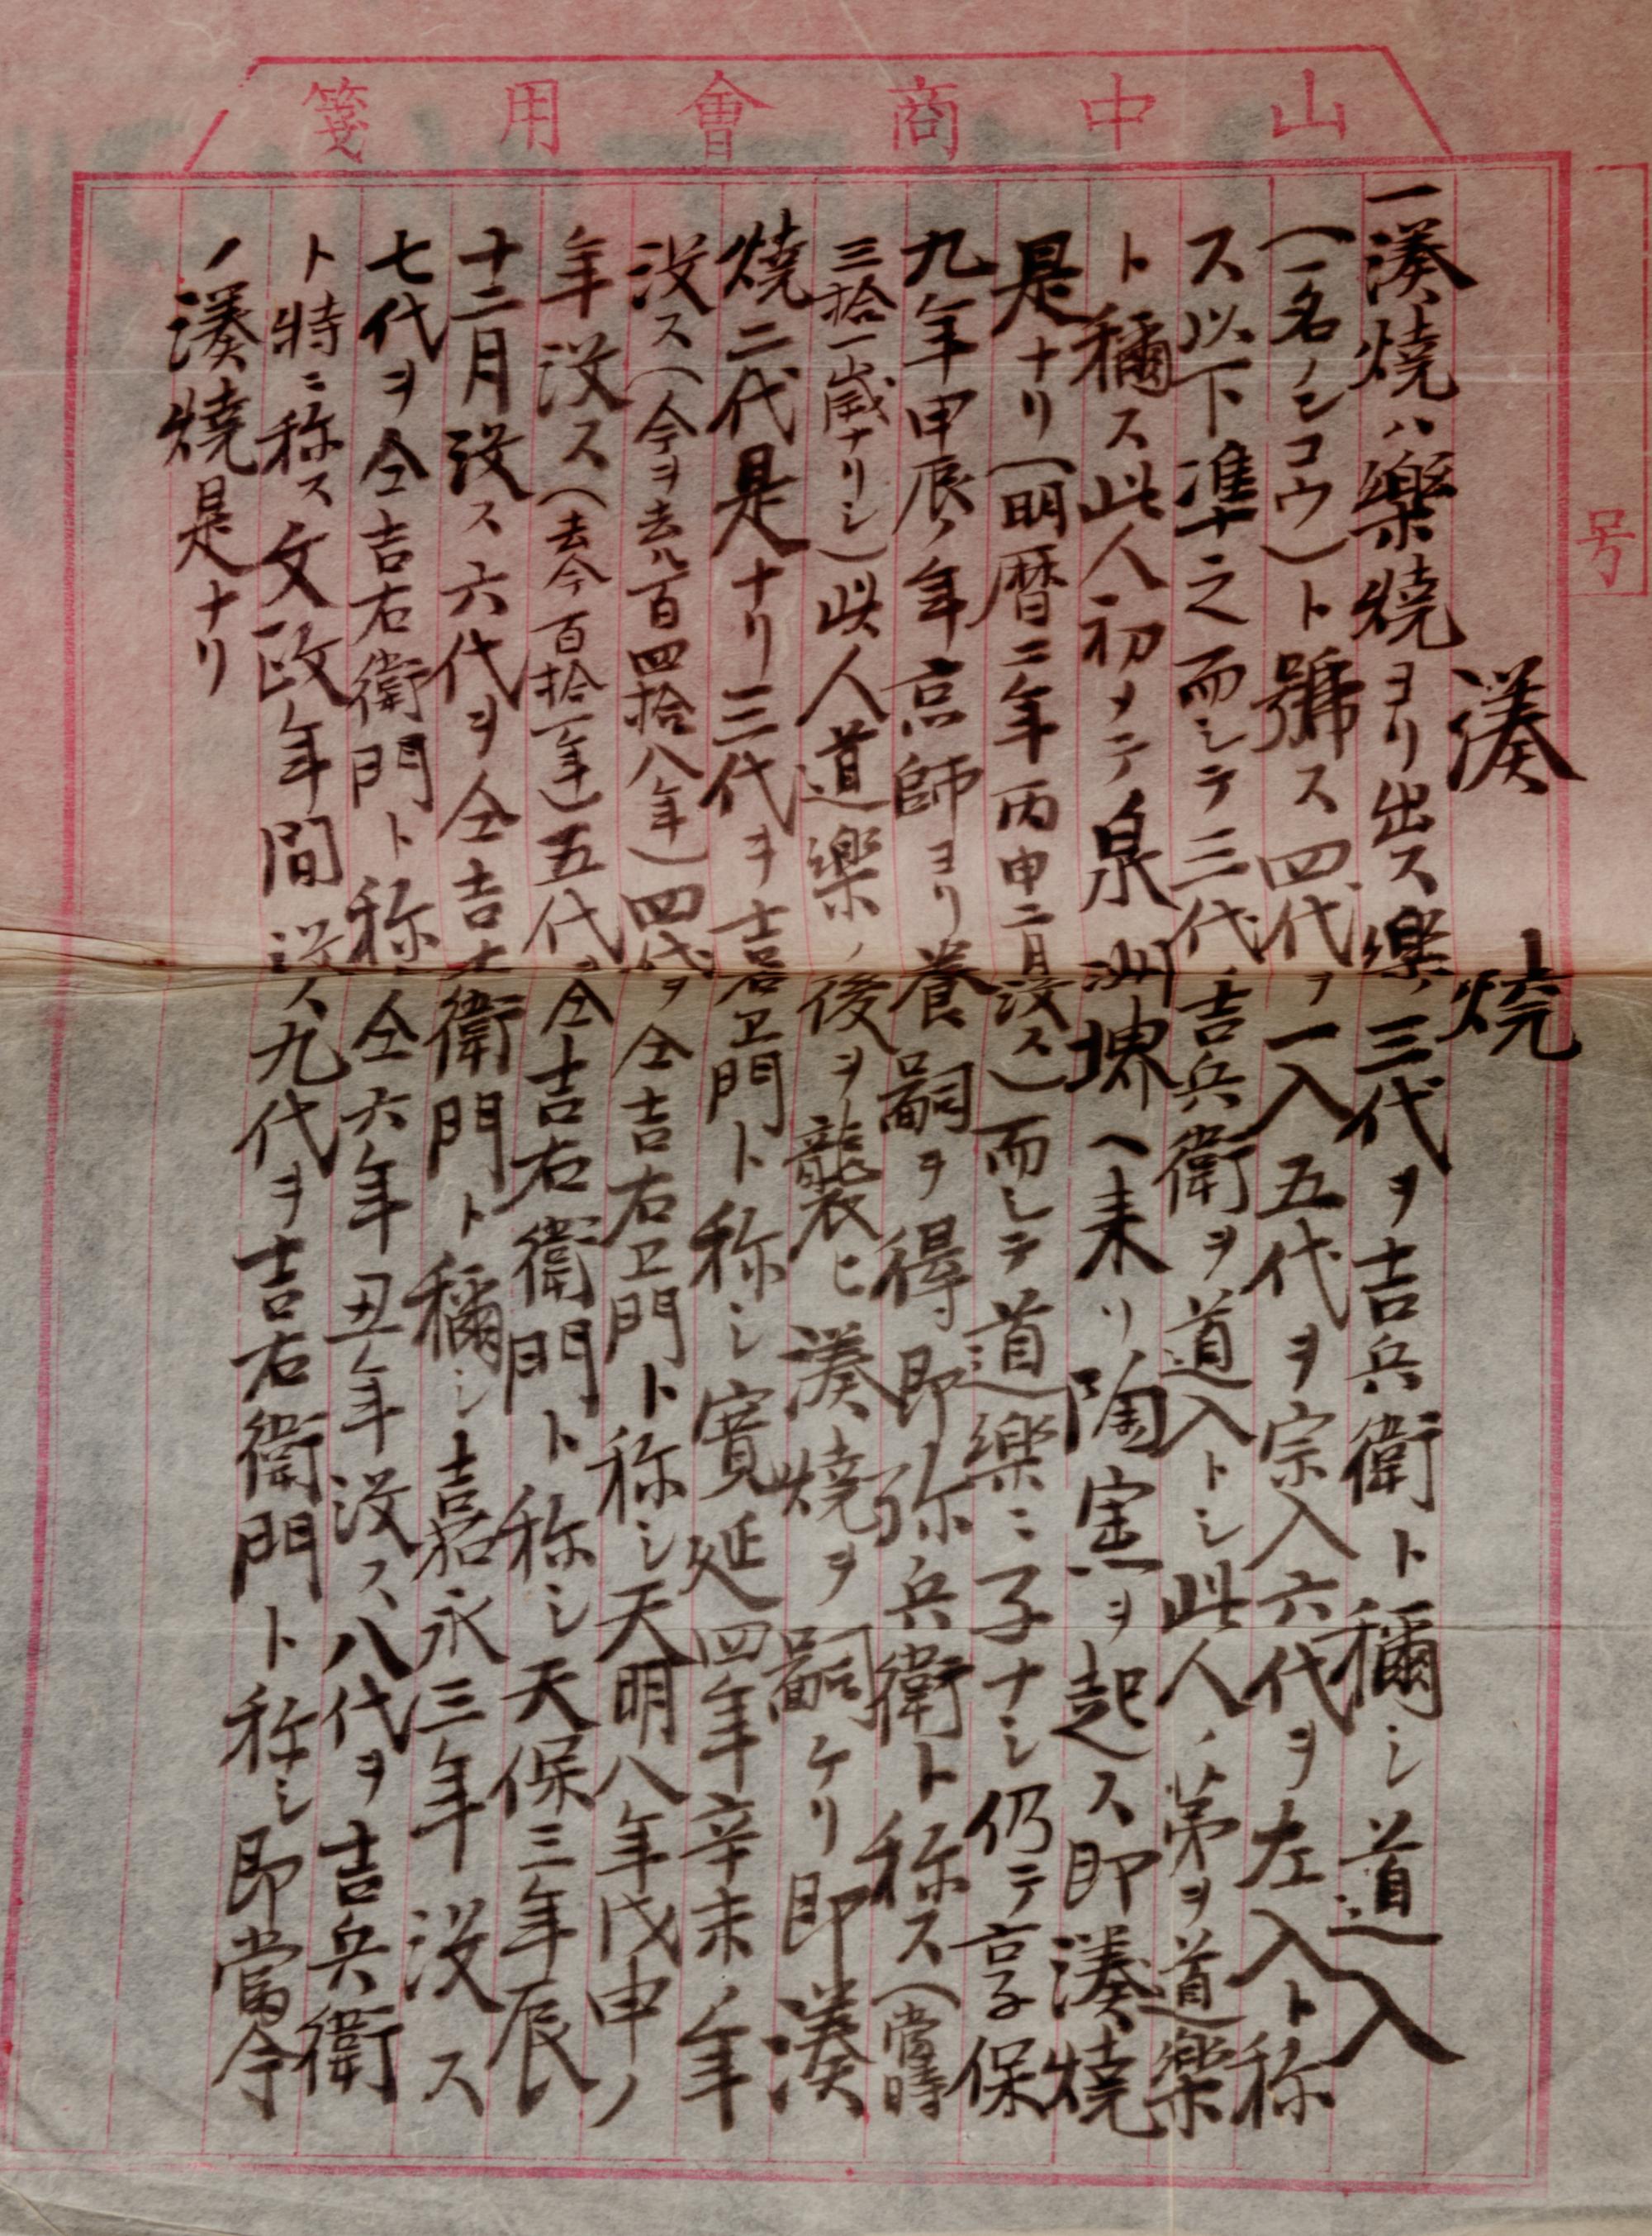 山中商會用箋
号
湊燒
一湊燒ハ樂燒ヨリ出ス樂三代ヲ吉兵衛ト稱シ道入
(一名ノンコウ)ト號ス四代ヲ一入五代ヲ宗入六代ヲ左入ト称
ス以下準之而シテ三代吉兵衛ヲ道入トシ此人ノ弟ヲ道樂
ト稱ス此人初メテ泉洲堺ヘ来リ陶窯ヲ起ス即湊燒
是ナリ(明暦二年丙申二月没ス)而シテ道樂ニ子ナシ仍テ享保
九年甲辰ノ年京師ヨリ養嗣ヲ得即弥兵衛ト称ス(當時
三拾一歳ナリシ)此人道樂ノ後ヲ襲ヒ湊燒ヲ嗣ケリ即湊
燒二代是ナリ三代ヲ吉右ヱ門ト称シ寛延四年辛未ノ年
没ス(今ヲ去ル百四拾八年)四代ヲ仝吉右ヱ門ト称シ天明八年戊申ノ
年没ス(去今百拾一年)五代ヲ仝吉右衛門ト称シ天保三年辰
十二月没ス六代ヲ仝吉右衛門ト稱シ嘉永三年没ス
七代ヲ仝吉右衛門ト称ス仝六年丑年没ス八代ヲ吉兵衛
ト特ニ称ス文政年間没ス九代ヲ吉右衛門ト称シ即當今
ノ湊燒是ナリ